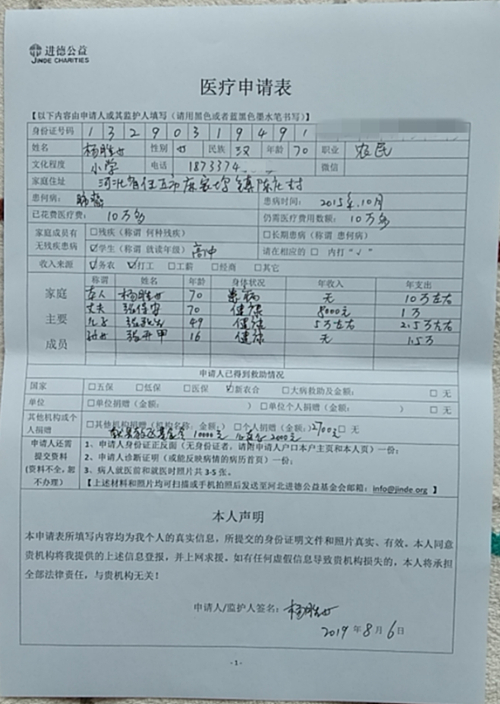 进德公益
JINDE CHARITIES
医疗申请表
【以下内容由申请人或其监护人填写（请用黑色或者蓝黑色墨水笔书写）】
身份证号码 1 3 2 9 0 3 1 9 4 9 1
姓名 性别 女 民族 汉 年龄 70 职业 农民
文化程度 小学 电话 1873374 微信
家庭住址 河北省任丘市 镇 村
患何病： 患病时间： 2015.10月
已花费医疗费： 10万多 仍需医疗费用数额： 10万多
家庭成员有 □残疾（称谓 何种残疾） □长期患病（称谓 患何病）
无残疾患病 ☑学生（称谓 就读年级） 高中 请在相应的 □ 内打“√”
收入来源 ☑务农 ☑打工 □工薪 □经商 □其它
称谓 姓名 年龄 身体状况 年收入 年支出
家庭 本人 70 患病 无 10万左右
主要 丈夫 70 健康 8000元 1万
儿子 49 健康 5万左右 2.5万左右
成员 16 健康 无 1.5万
申请人已得到救助情况
国家 □五保 □低保 □医保 ☑新农合 □大病救助及金额： □ 无
单位 □单位捐赠（金额： ） □单位个人捐赠（金额： ） □ 无
其他机构或个人捐赠 □其他机构捐赠（机构名称、金额： □个人捐赠（金额： 2700元 □ 无
10000元 2000元
申请人还需提交资料（资料不全，恕不办理）
1、申请人身份证正反面（无身份证者，请附申请人户口本户主页和本人页）一份；
2、申请人诊断证明（或能反映病情的病历首页）一份；
3、病人就医前和就医时照片共 3-5 张。
【上述材料和照片均可扫描或手机拍照后发送至河北进德公益基金会邮箱：info@jinde.org 】
本人声明
本申请表所填写内容均为我个人的真实信息，所提交的身份证明文件和照片真实、有效。本人同意
贵机构将我提供的上述信息登报，并上网求援。如有任何虚假信息导致贵机构损失的，本人将承担
全部法律责任，与贵机构无关！
申请人/监护人签名：
2019 年 8 月 6 日
- 1 -